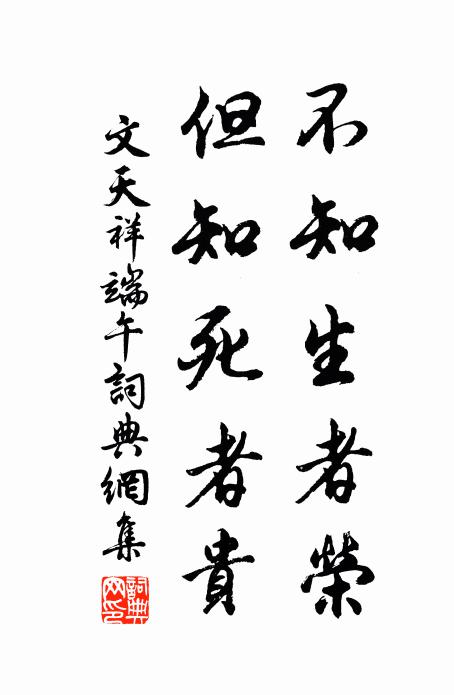 不知生者榮
但知死者貴
文天祥端午詞典網集
詞典網印